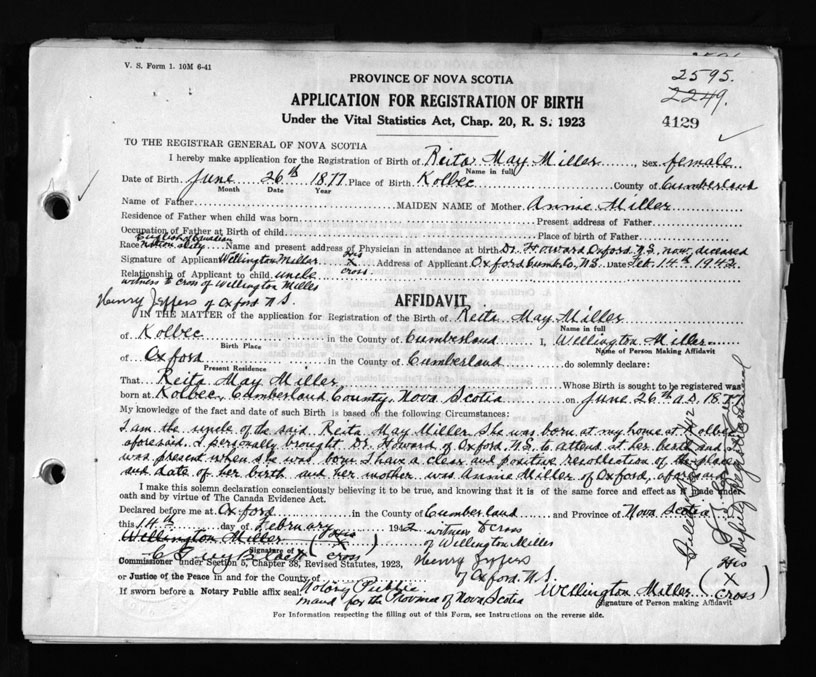 V. S. Form 1. 10M 6-41
2595.
PROVINCE OF NOVA SCOTIA
2249.
APPLICATION FOR REGISTRATION OF BIRTH
Under the Vital Statistics Act, Chap. 20, R. S. 1923
4129
TO THE REGISTRAR GENERAL OF NOVA SCOTIA
I hereby make application for the Registration of Birth of Reita May Miller, Sex female
Name in full
Date of Birth June 26th 1877 Place of Birth Kolbec County of Cumberland
Month Date Year
Name of Father MAIDEN NAME of Mother Annie Miller
Residence of Father when child was born Present address of Father
Occupation of Father at Birth of child Place of birth of Father
English Canadian
Race nationality Name and present address of Physician in attendance at birth Dr. Howard Oxford N.S. now deceased
Signature of Applicant Wellington Miller His X cross. Address of Applicant Oxford Cumb. Co. N.S. Date Feb. 14th 1942
Relationship of Applicant to child uncle
witness to cross of Wellington Miller
Henry Jeffers of Oxford N S.
AFFIDAVIT
IN THE MATTER of the application for Registration of the Birth of Reita May Miller
Name in full
of Kolbec in the County of Cumberland I, Wellington Miller
Birth Place Name of Person Making Affidavit
of Oxford in the County of Cumberland do solemnly declare:
Present Residence
That Reita May Miller Whose Birth is sought to be registered was
born at Kolbec, Cumberland County, Nova Scotia on June 26th A.D. 1877
My knowledge of the fact and date of such Birth is based on the following Circumstances:
I am the uncle of the said Reita May Miller She was born at my home at Kolbec
aforesaid. I personally brought Dr. Howard of Oxford N.S. to attend at her birth and I
was present when she was born I have a clear and positive recollection of the place
and date of her birth and her mother was Annie Miller of Oxford, aforesaid
I make this solemn declaration conscientiously believing it to be true, and knowing that it is of the same force and effect as if made under
oath and by virtue of The Canada Evidence Act.
Declared before me at Oxford in the County of Cumberland and Province of Nova Scotia
this 14th day of February 1942 witness to cross
Wellington Miller (His X cross) of Wellington Miller
Signature of
Henry Jeffers
of Oxford N.S.
Commissioner under Section 5, Chapter 38, Revised Statutes, 1923,
or Justice of the Peace In and for the County of
If sworn before a Notary Public affix seal. Notary Public
in and for the Province of Nova Scotia
Wellington Miller (His X cross)
Signature of Person making Affidavit
For Information respecting the filling out of this Form, see Instructions on the reverse side.
Deputy Registrar General